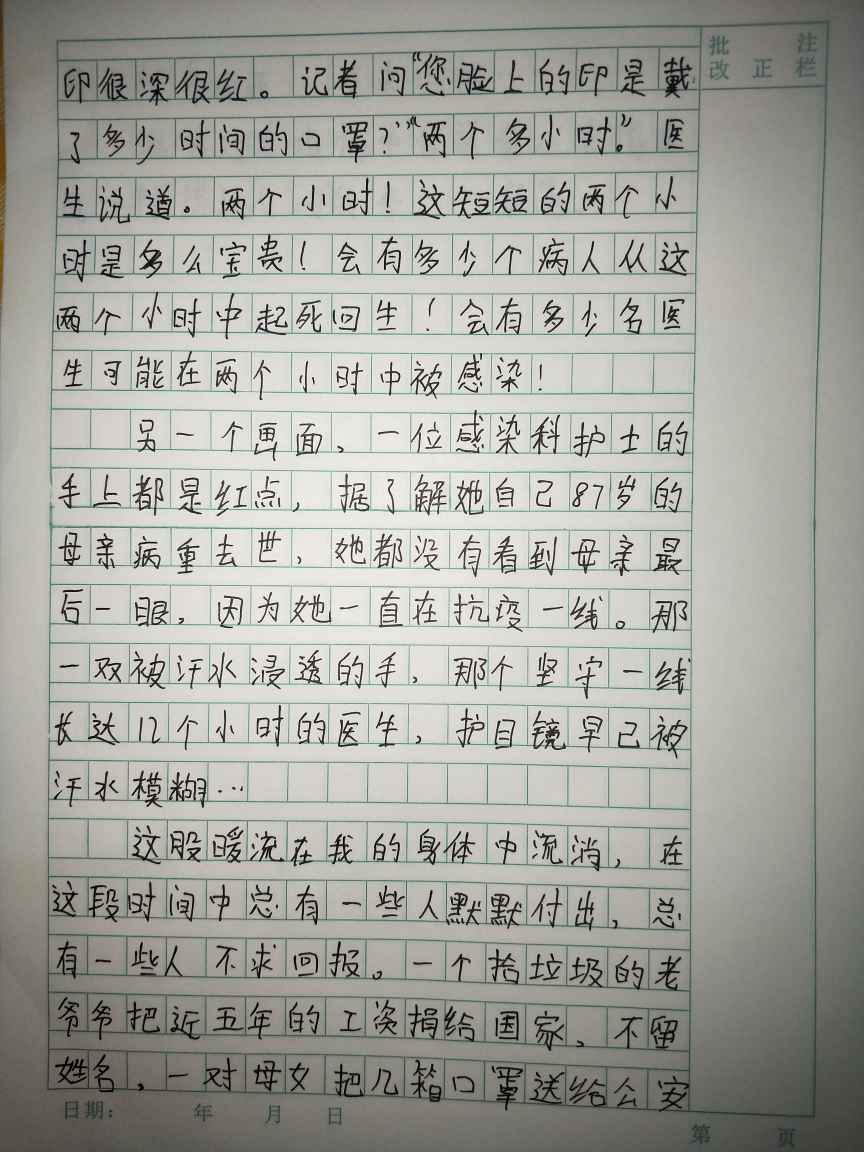 批 注
改 正 栏
印很深很红。记者问“您脸上的印是戴
了多少时间的口罩?”“两个多小时。”医
生说道。两个小时!这短短的两个小
时是多么宝贵!会有多少个病人从这
两个小时中起死回生!会有多少名医
生可能在两个小时中被感染!
另一个画面,一位感染科护士的
手上都是红点,据了解她自己87岁的
母亲病重去世,她都没有看到母亲最
后一眼,因为她一直在抗疫一线。那
一双被汗水浸透的手,那个坚守一线
长达12个小时的医生,护目镜早已被
汗水模糊…
这股暖流在我的身体中流淌,在
这段时间中总有一些人默默付出,总
有一些人不求回报。一个拾垃圾的老
爷爷把近五年的工资捐给国家,不留
姓名,一对母女把几箱口罩送给公安
日期: 年 月 日
第 页